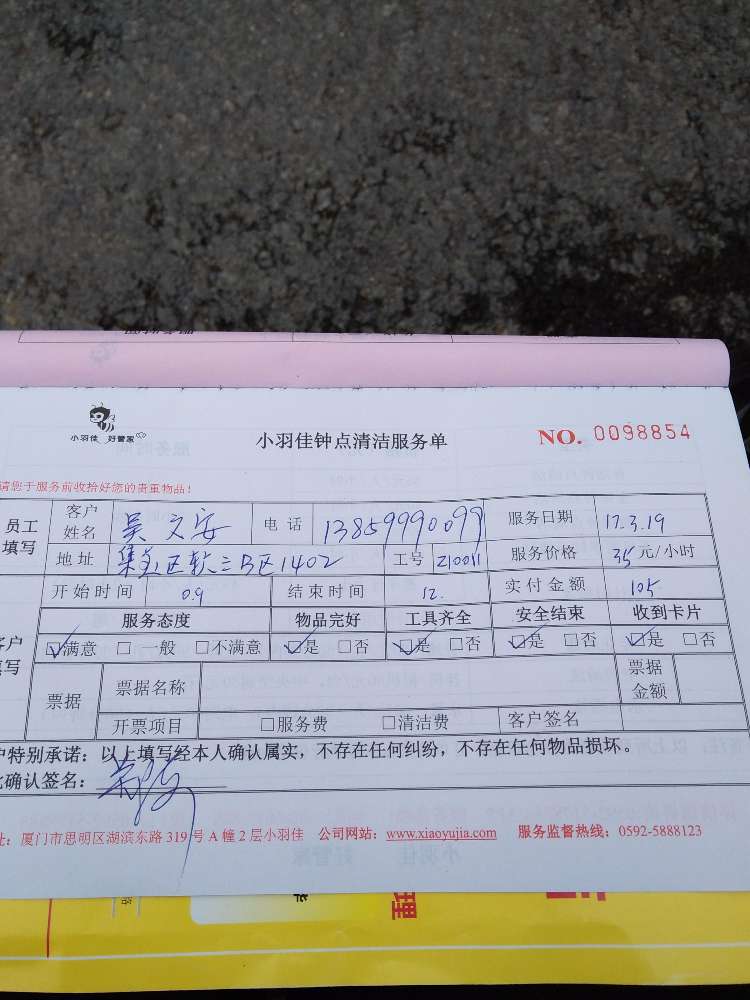 小羽佳 好管家
小羽佳钟点清洁服务单 NO. 0098854
请您于服务前收拾好您的贵重物品!
员工填写 客户姓名 吴文安 电话 13859990099 服务日期 17.3.19
地址 集美区软三B区1402 工号 210011 服务价格 35元/小时
开始时间 0.9 结束时间 12. 实付金额 105
服务态度 物品完好 工具齐全 安全结束 收到卡片
客户填写 ☑满意 □一般 □不满意 ☑是 □否 ☑是 □否 ☑是 □否 ☑是 □否
票据 票据名称 票据金额
开票项目 □服务费 □清洁费 客户签名
户特别承诺:以上填写经本人确认属实,不存在任何纠纷,不存在任何物品损坏。
此确认签名:
址:厦门市思明区湖滨东路 319 号 A 幢 2 层小羽佳 公司网站:www.xiaoyujia.com 服务监督热线:0592-5888123
理